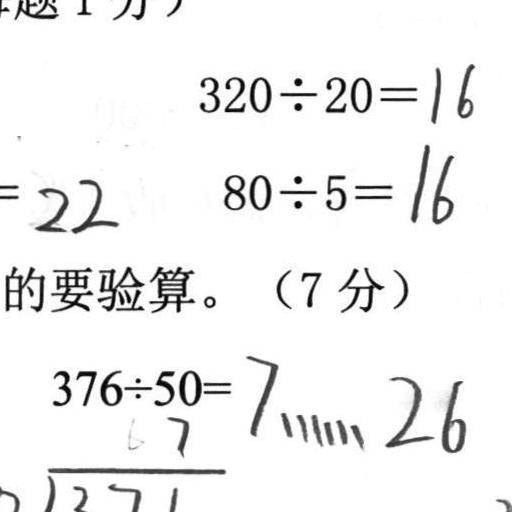 题 1 分）
320÷20=16
=22 80÷5=16
的要验算。（7 分）
376÷50=7……26
7